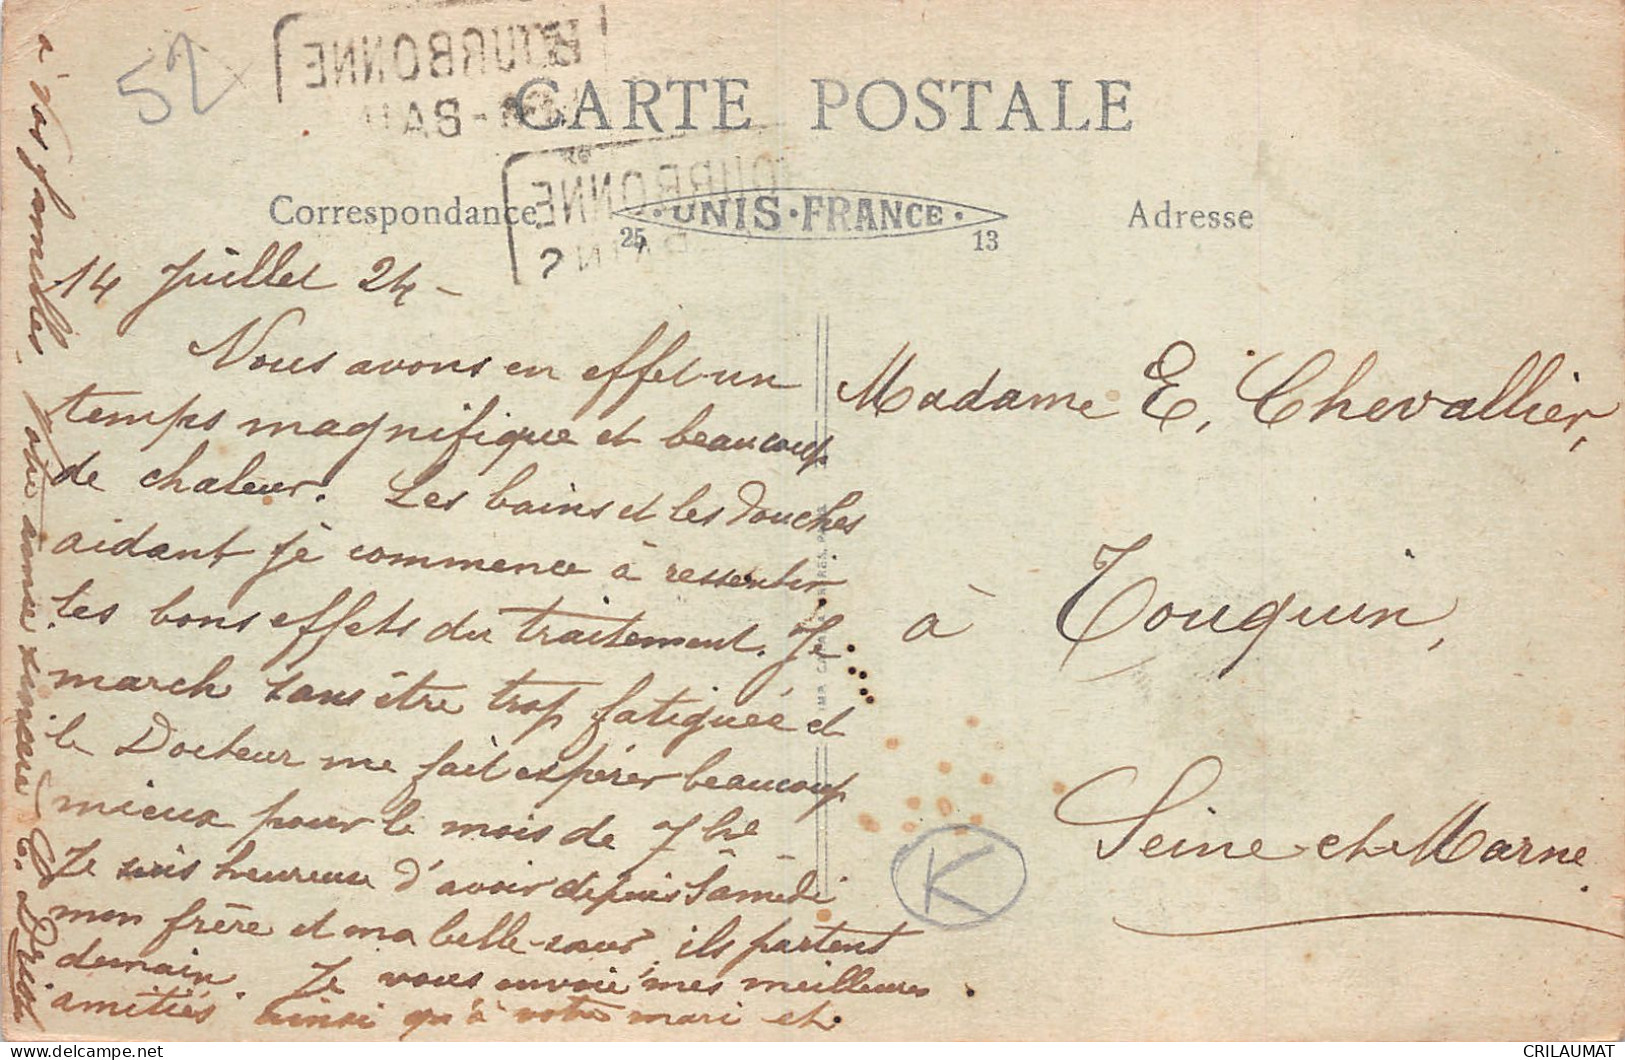 52
BOURBONNE
CARTE POSTALE
BOURBONNE
Correspondance
UNIS-FRANCE
Adresse
25
13
14 Juillet 24 -
Nous avons en effet un
temps magnifique et beaucoup
de chaleur. Les bains et les douches
aidant je commence à ressentir
les bons effets du traitement. Je
march sans être trop fatiguée et
le Docteur me fait espérer beaucoup
mieux pour le mois de 7bre
Je suis heureuse d'avoir depuis Samedi
mon frère et ma belle-sœur, ils partent
demain. Je vous envoie mes meilleures
amitiés ainsi qu'à votre mari et
à vos familles. Votre amie sincère
Madame E. Chevallier,
à Touquin,
Seine-et-Marne.
K
CRILAUMAT